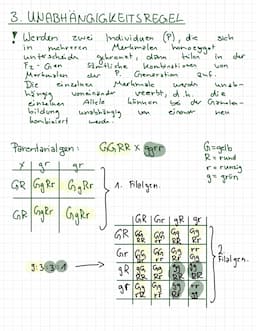 3. UNABHÄNGIGKEITSREGEL
! Werden zwei Individuen (P), die sich
in mehreren Merkmalen homozygot
unterscheiden gekreuzt, dann treten in der
F2-Gen sämtliche Kombinationen von
Merkmalen der P. Generation auf.
Die einzelnen Merkmale werden unab-
hängig voneinander vererbt, d.h. die
einzelnen Allele können bei der Gameten-
bildung unabhängig von einander neu
kombiniert werden.
Parentalgen: GGRR x ggrr
G=gelb
R=rund
r=runzig
g=grün
x gr gr
GR GgRr GgRr
GR GgRr GgRr
1. Filialgen.
9:3:3:1
GR Gr gR gr
GR
Gr
gR
gr
2. Filialgen.